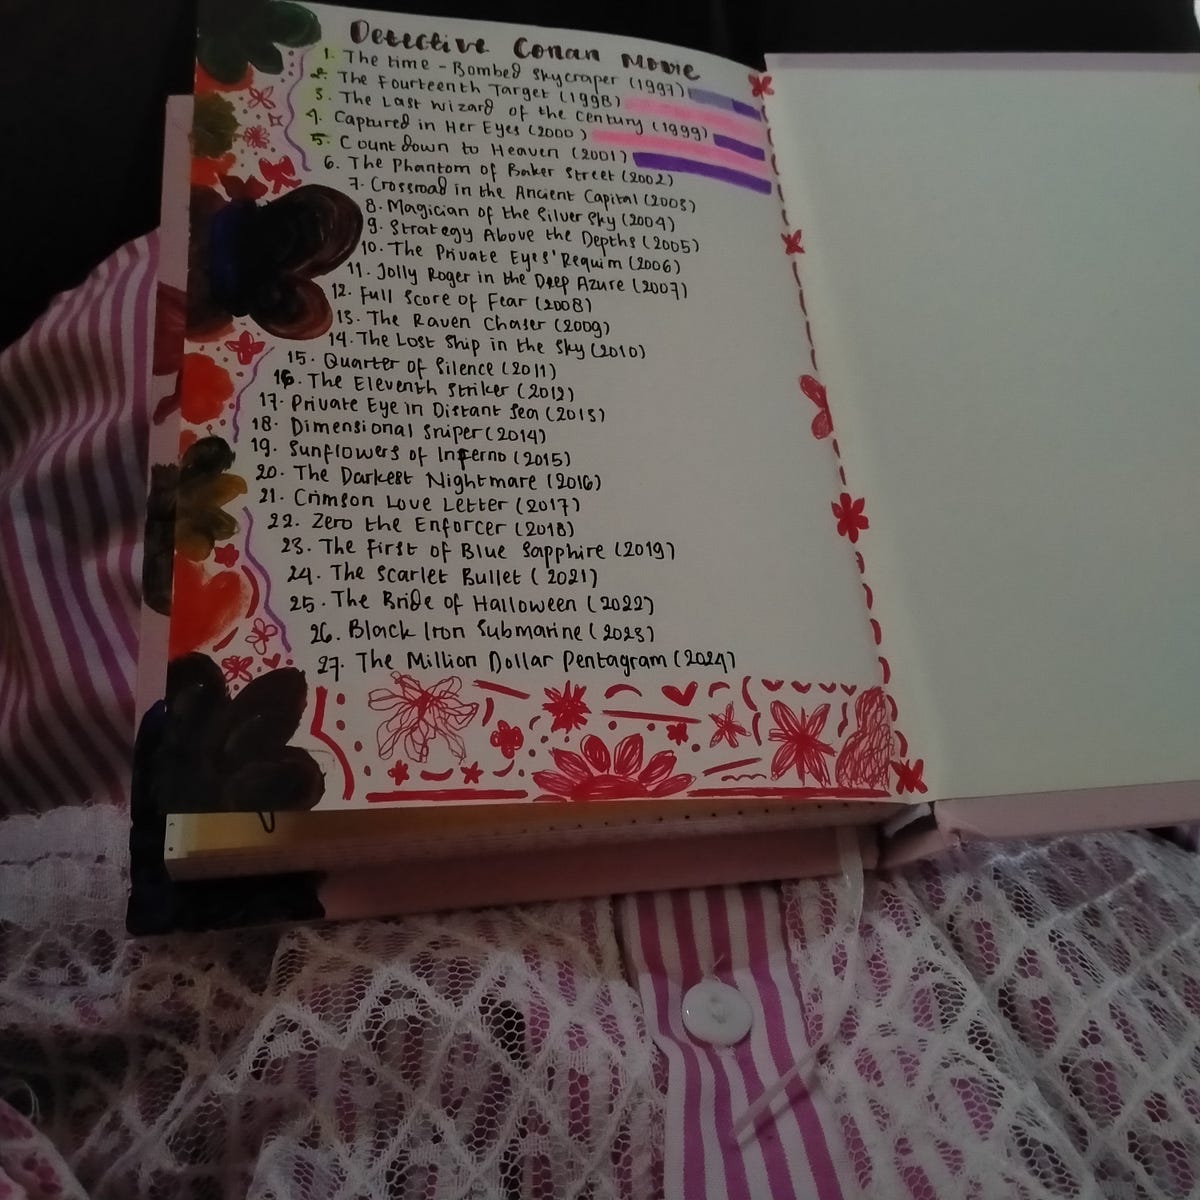 Detective Conan Movie
1. The time - Bombed Skycraper (1997)
2. The Fourteenth Target (1998)
3. The Last Wizard of the Century (1999)
4. Captured in Her Eyes (2000)
5. Count down to Heaven (2001)
6. The Phantom of Baker Street (2002)
7. Crossroad in the Ancient Capital (2003)
8. Magician of the Silver Sky (2004)
9. Strategy Above the Depths (2005)
10. The Private Eyes' Requim (2006)
11. Jolly Roger in the Deep Azure (2007)
12. Full Score of Fear (2008)
13. The Raven Chaser (2009)
14. The Lost Ship in the Sky (2010)
15. Quarter of Silence (2011)
16. The Eleventh Striker (2012)
17. Private Eye in Distant Sea (2013)
18. Dimensional Sniper (2014)
19. Sunflowers of Inferno (2015)
20. The Darkest Nightmare (2016)
21. Crimson Love Letter (2017)
22. Zero the Enforcer (2018)
23. The First of Blue Sapphire (2019)
24. The Scarlet Bullet (2021)
25. The Bride of Halloween (2022)
26. Black Iron Submarine (2023)
27. The Million Dollar Pentagram (2024)